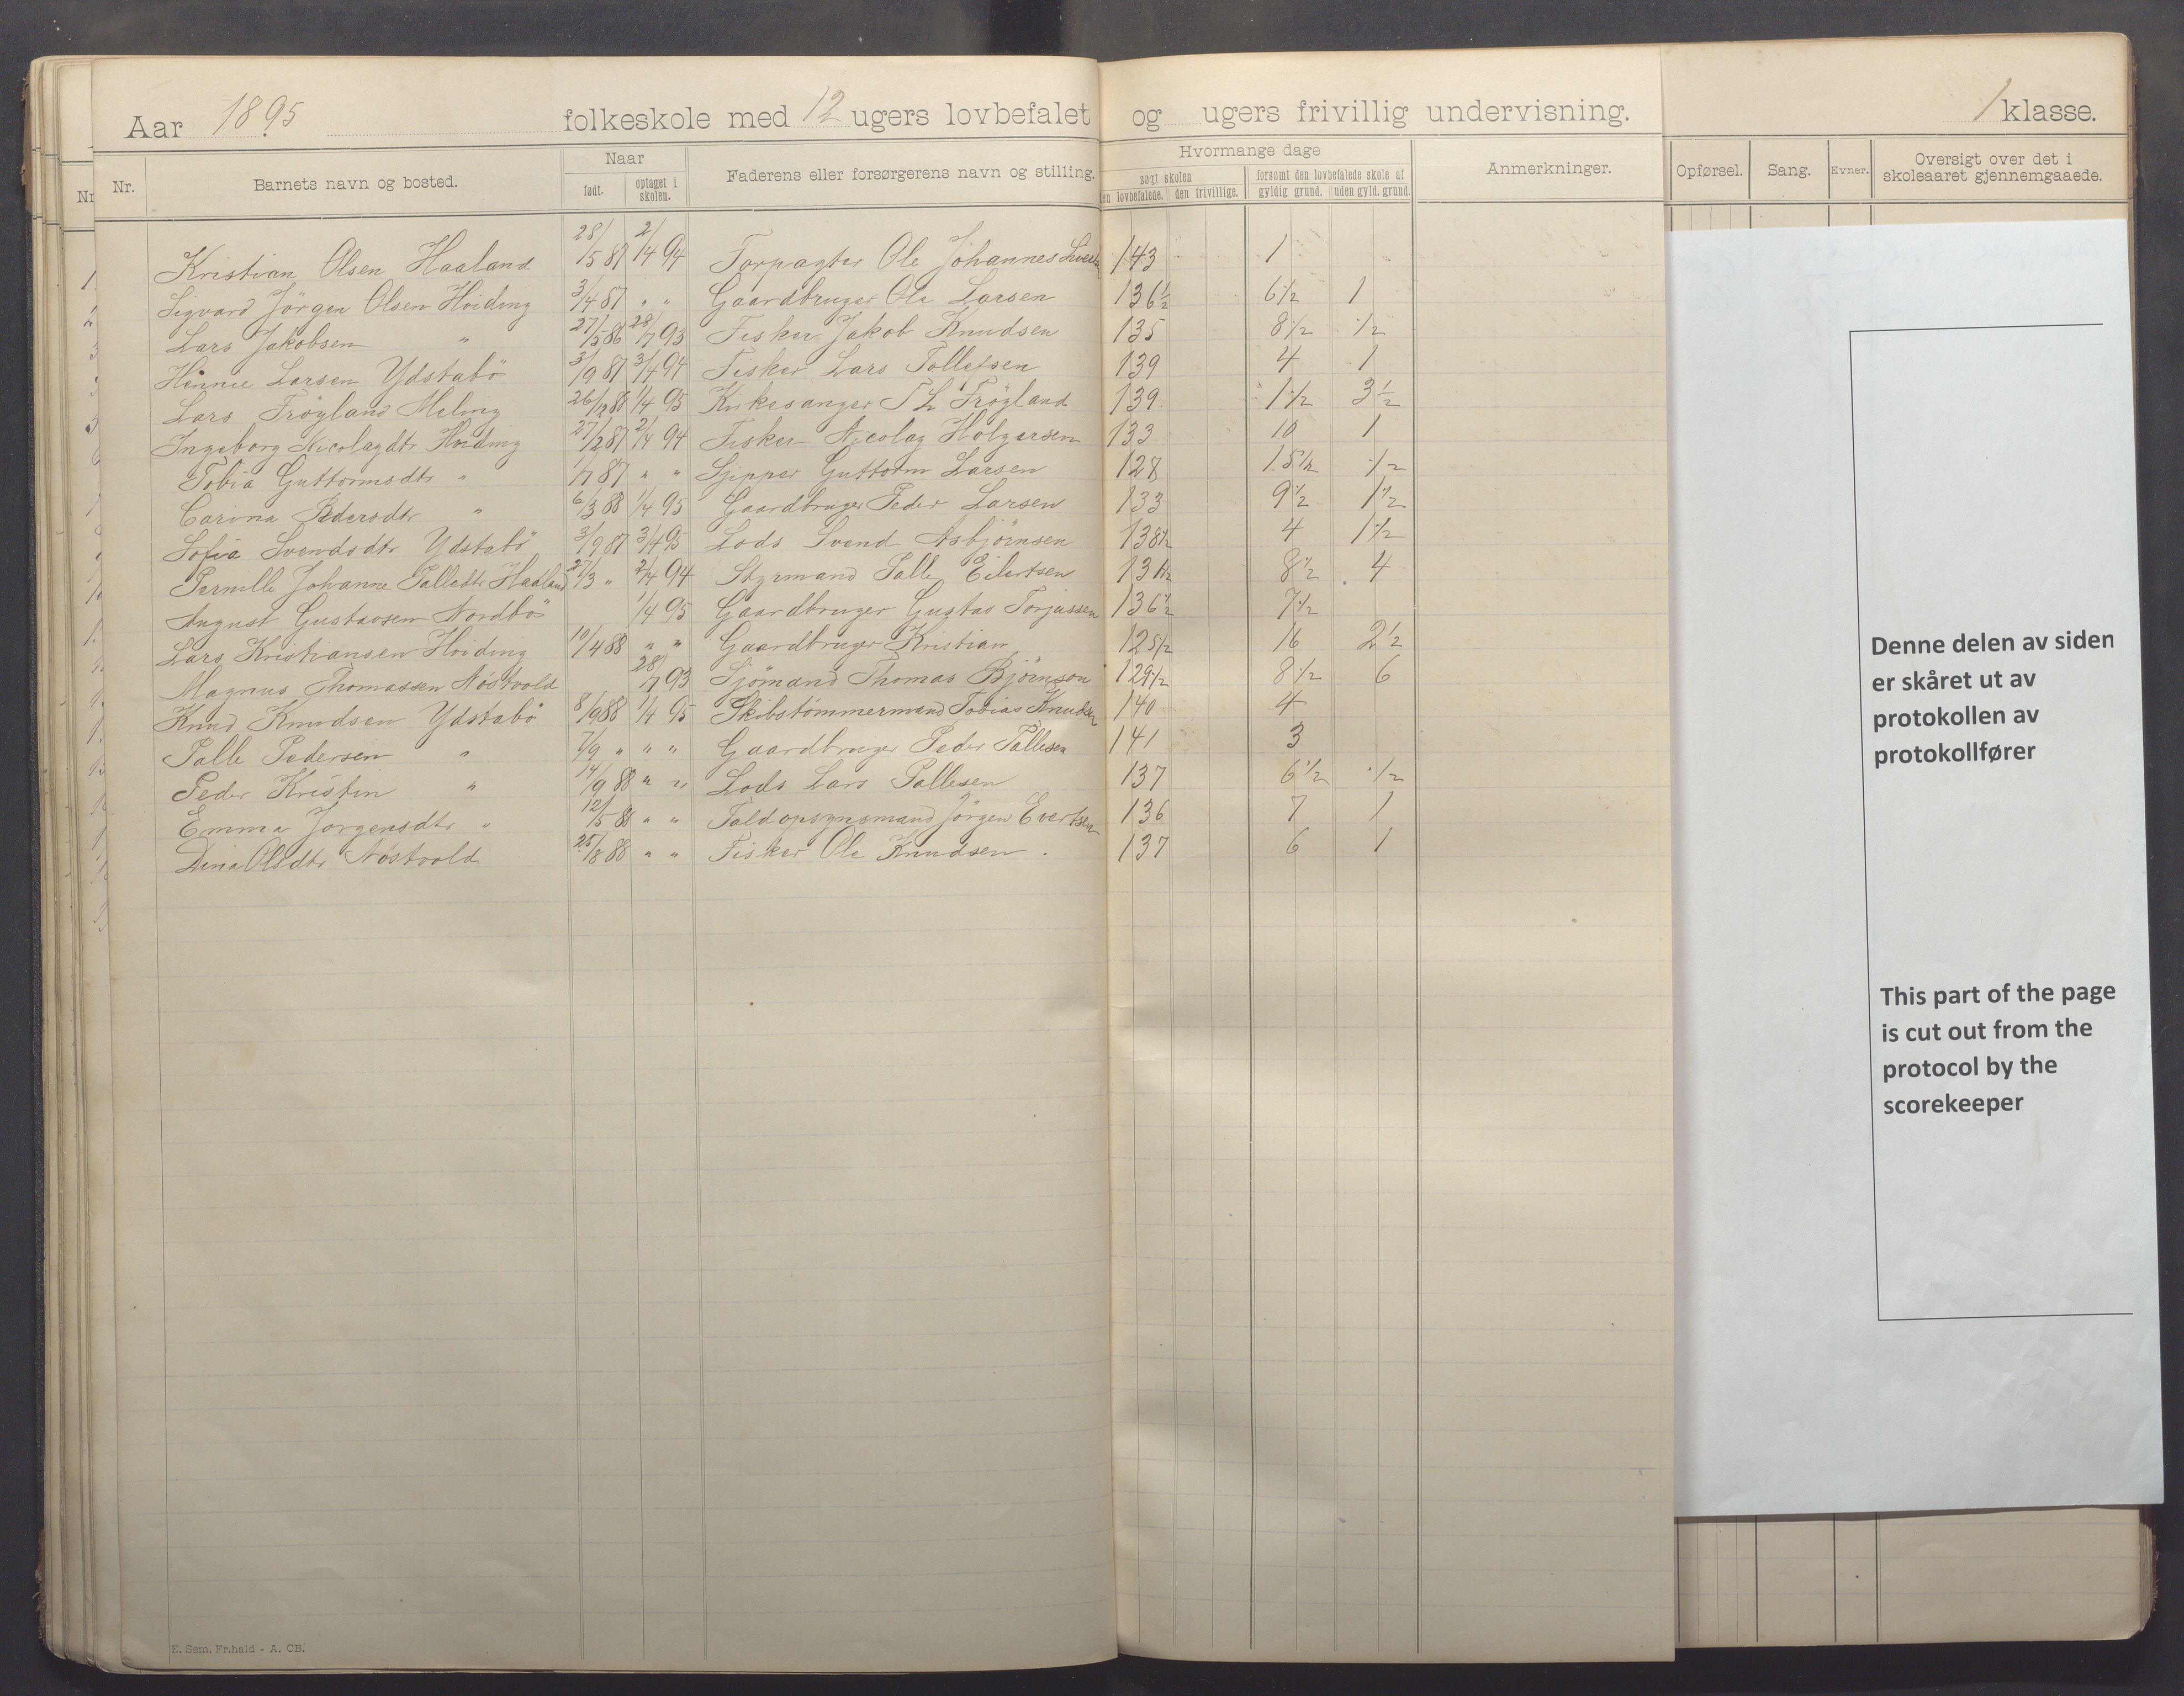 Aar 1895 folkeskole med 12 ugers lovbefalet og ugers frivillig undervisning. 1 klasse.
Nr. Barnets navn og bosted. Naar født. optaget i skolen. Faderens eller forsørgerens navn og stilling. Hvormange dage søgt skolen den lovbefalede. den frivillige. forsømt den lovbefalede skole af gyldig grund. uden gyld. grund. Anmerkninger. Opførsel. Sang. Evner. Oversigt over det i skoleaaret gjennemgaaede.
Kristian Olsen Haaland 28/5 87 2/4 94 Forpagter Ole Johannes 143 1
Sigvard Jörgen Olsen Hviding 3/4 87 " " Gaardbruger Ole Larsen 136½ 6½ 1
Lars Jakobsen " 27/5 86 28/7 93 Fisker Jakob Knudsen 135 8½ ½
Hennie Larsen Ydstabö 3/9 87 3/4 94 Fisker Lars Tollefsen 139 4 1
Lars Fröyland Meling 26/12 88 1/4 95 Kirkesanger T L Fröyland 139 1½ 3½
Ingeborg Nicolaydtr Hviding 27/2 87 2/4 94 Fisker Nicolay Holgersen 133 10 1
Tobia Guttormsdtr " 1/7 87 " " Skipper Guttorm Larsen 128 15½ ½
Carina Pedersdtr " 6/3 88 1/4 95 Gaardbruger Peder Larsen 133 9½ 1½
Sofia Svendsdtr Ydstabö 3/9 87 3/4 95 Lods Svend Asbjörnsen 138½ 4 1½
Pernille Johanne Palledtr Haaland 27/3 " 2/4 94 Styrmand Palle Eilertsen 131½ 8½ 4
August Gustavsen Nordbö 1/4 95 Gaardbruger Gustav Torjussen 136½ 7½
Lars Kristiansen Hviding 10/4 88 " " Gaardbruger Kristian 125½ 16 2½
Magnus Thomassen Nöstvold 28/7 93 Sjömand Thomas Björnson 129½ 8½ 6
Knud Knudsen Ydstabö 8/9 88 1/4 95 Skibstömmermand Tobias Knudsen 140 4
Palle Pedersen " 7/9 " " " Gaardbruger Peder Pallesen 141 3
Peder Kristin " 14/9 88 " " Lods Lars Pallesen 137 6½ ½
Emma Jorgensdtr " 12/5 88 " " Toldopsynsmand Jörgen Evertsen 136 7 1
Dina Olsdtr Nöstvold 25/8 88 " " Fisker Ole Knudsen. 137 6 1
E. Sem, Fr.hald - A. CB.
Denne delen av siden
er skåret ut av
protokollen av
protokollfører
This part of the page
is cut out from the
protocol by the
scorekeeper